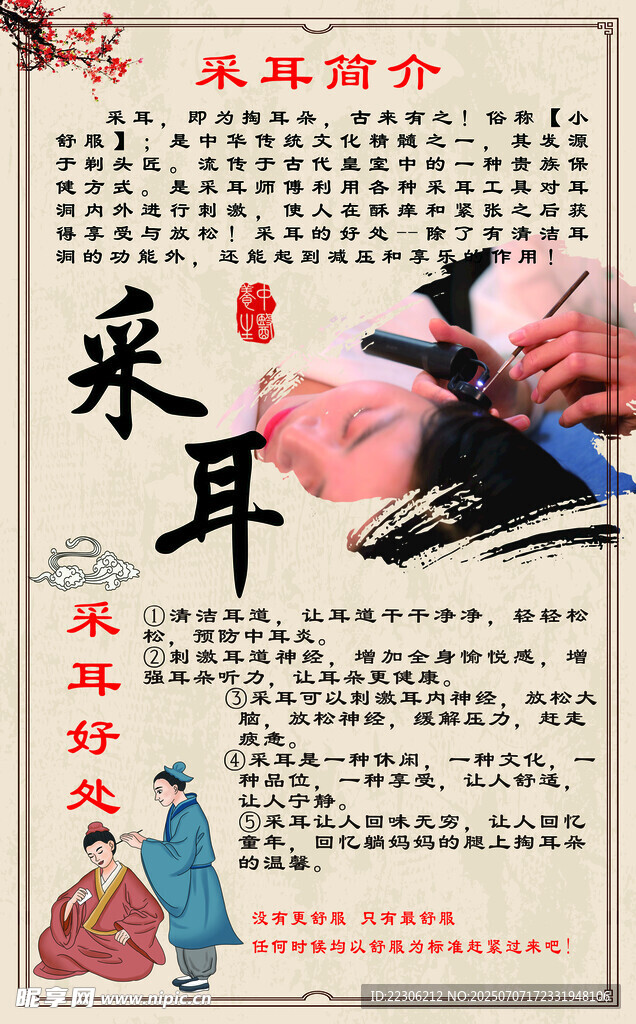 采耳简介
采耳，即为掏耳朵，古来有之！俗称【小
舒服】；是中华传统文化精髓之一，其发源
于剃头匠。流传于古代皇室中的一种贵族保
健方式。是采耳师傅利用各种采耳工具对耳
洞内外进行刺激，使人在酥痒和紧张之后获
得享受与放松！采耳的好处--除了有清洁耳
洞的功能外，还能起到减压和享乐的作用！
中醫
養生
采
耳
采耳好处
①清洁耳道，让耳道干干净净，轻轻松
松，预防中耳炎。
②刺激耳道神经，增加全身愉悦感，增
强耳朵听力，让耳朵更健康。
③采耳可以刺激耳内神经，放松大
脑，放松神经，缓解压力，赶走
疲惫。
④采耳是一种休闲，一种文化，一
种品位，一种享受，让人舒适，
让人宁静。
⑤采耳让人回味无穷，让人回忆
童年，回忆躺妈妈的腿上掏耳朵
的温馨。
没有更舒服 只有最舒服
任何时候均以舒服为标准赶紧过来吧！
昵享网 www.nipic.cn
ID:22306212 NO:20250707172331948106